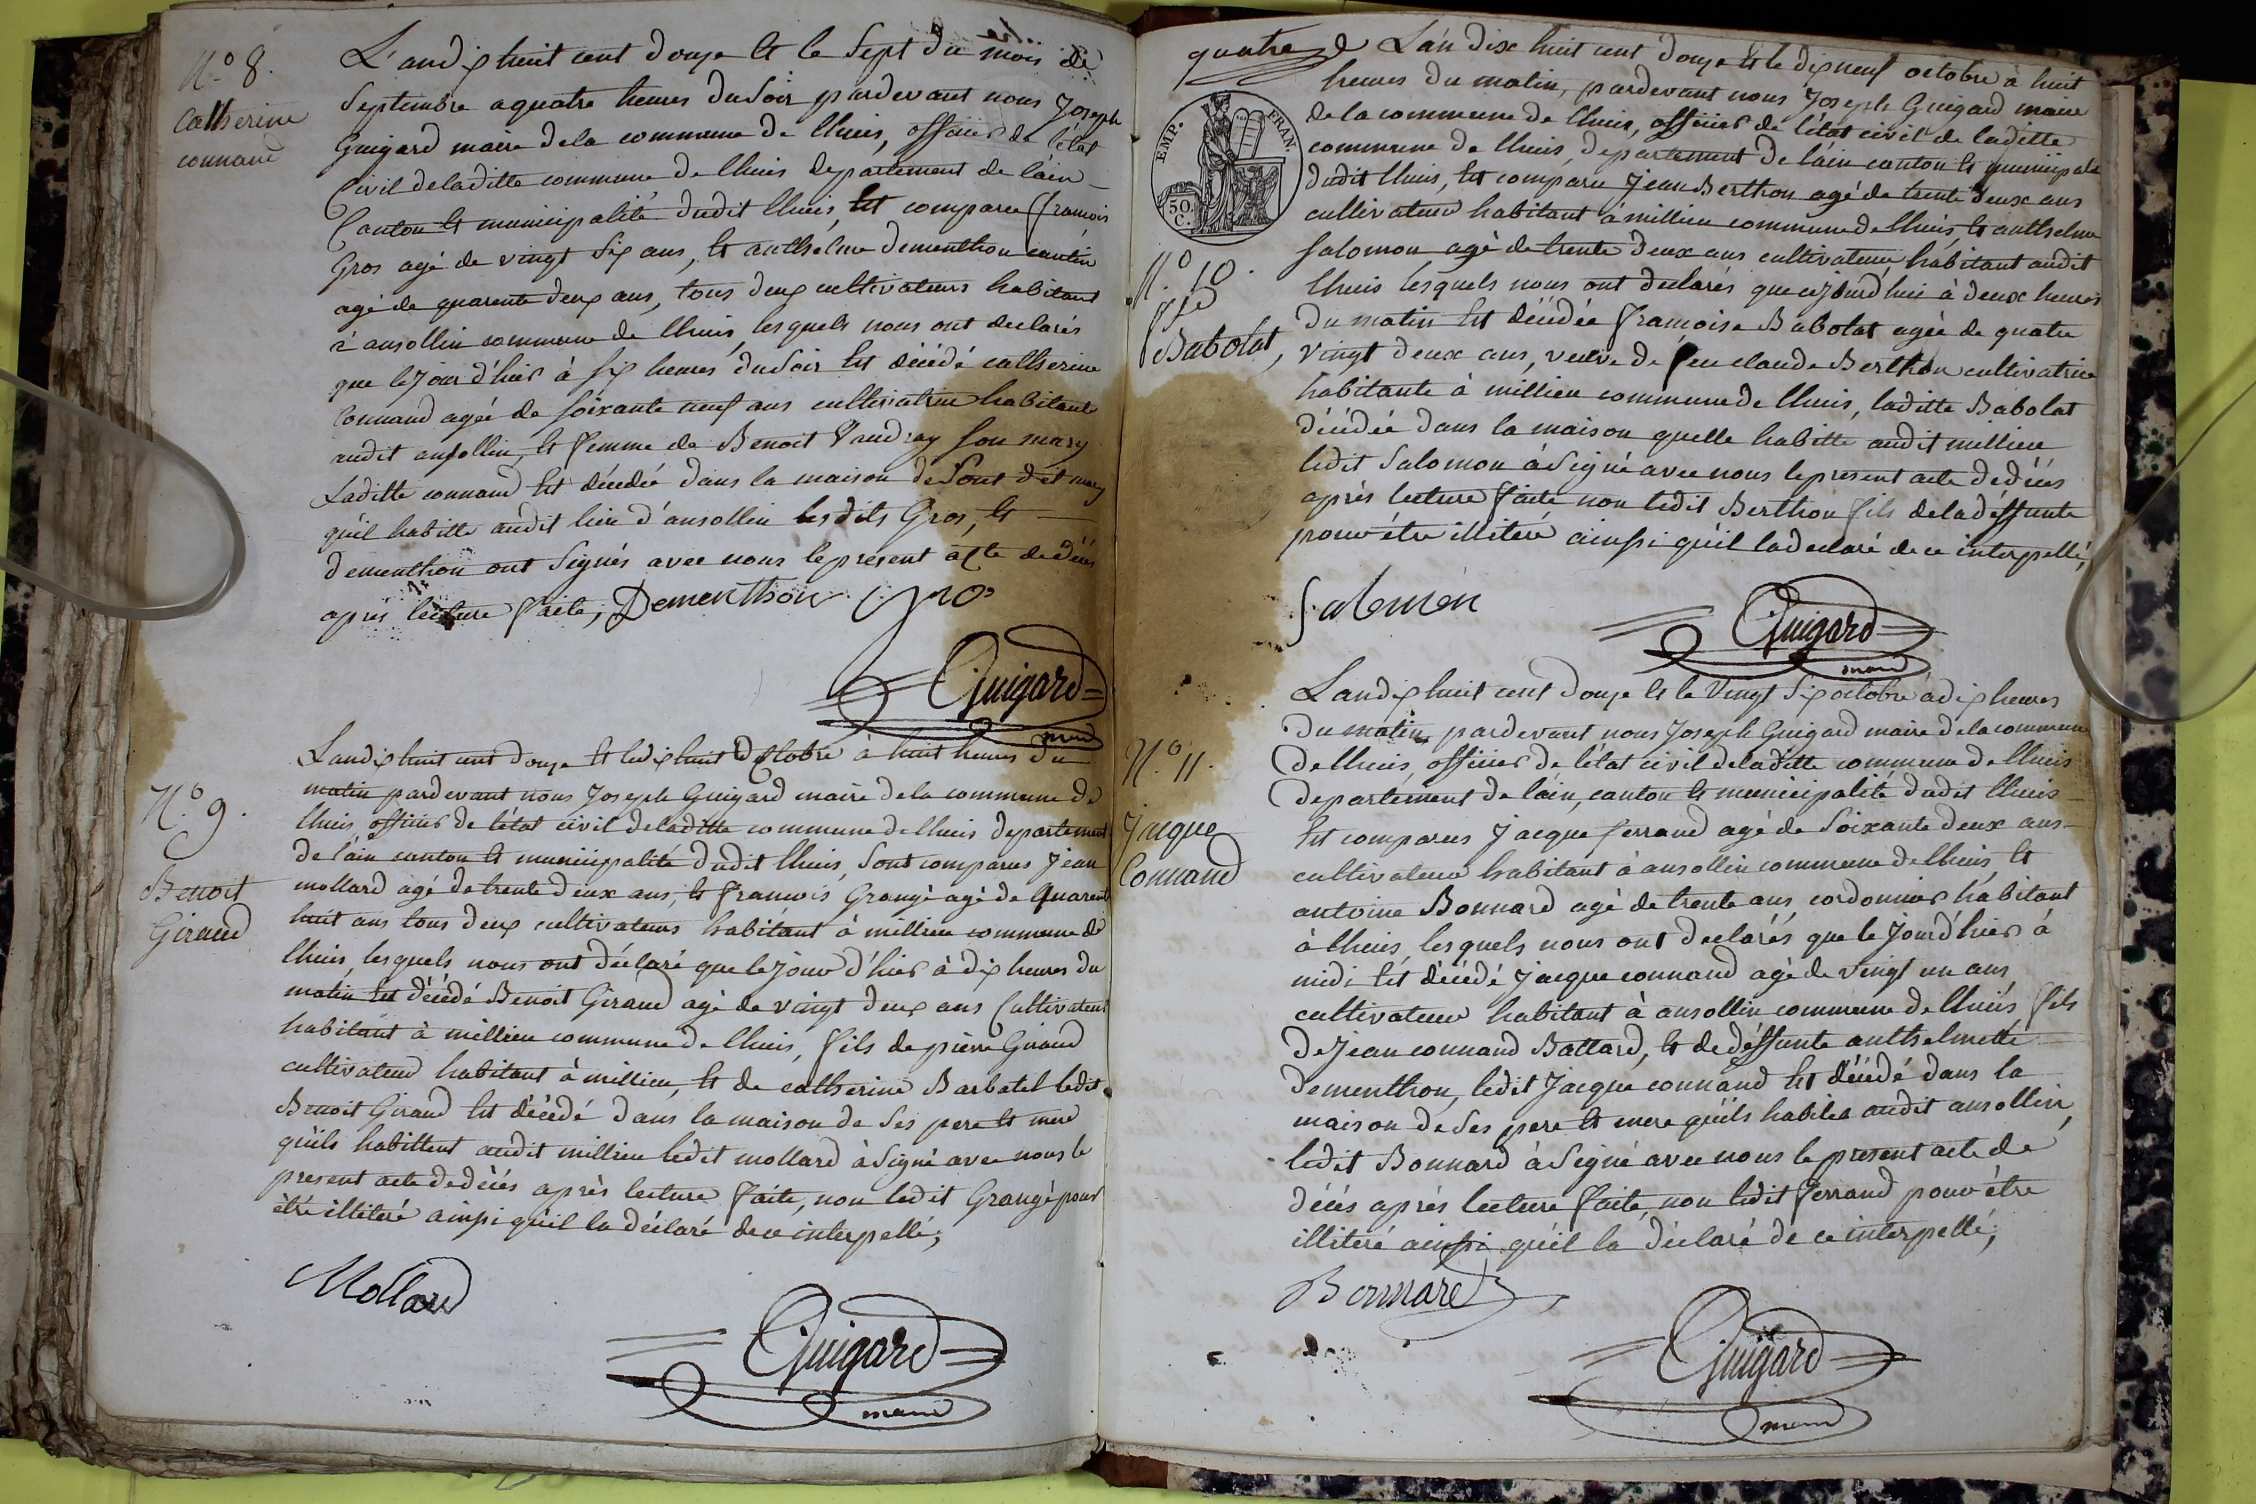 N.º 8.
Catherine
connand
L'an dix huit cent douze et le Sept du mois de
Septembre a quatre heures du Soir pardevant nous Joseph
Guigard maire de la commune de lhuis, officier de l'état
Civil de laditte commune de lhuis departement de l'ain
Canton et municipalité dudit lhuis, Est comparu françois
Gros agé de vingt six ans, et anthelme dementhon cantin
agé de quarente deux ans, tous deux cultivateurs habitant
à ansollin commune de lhuis, lesquels nous ont declarés
que le Jour d'hier à six heures du Soir Est décédé catherine
Connand agée de soixante neuf ans cultivatrice habitante
audit ansollin, et femme de Benoit Vaudray son mary
Laditte connand Est décédée dans la maison de Sont dit mary
qu'il habitte audit lieu d'ansollin lesdits Gros, et
dementhon ont Signés avec nous le present acte de décés
apres lecture faite; Dementhon Gros
Guigard
maire
N.º 9.
Benoit
Giraud
L'an dix huit cent douze et le dix huit octobre à huit heures du
matin pardevant nous Joseph Guigard maire de la commune de
lhuis, officier de l'état civil de laditte commune de lhuis departement
de l'ain canton et municipalité dudit lhuis, Sont comparus Jean
mollard agé de trente deux ans, et francois Grangé agé de quarente
huit ans tous deux cultivateurs habitant à millieu commune de
lhuis, lesquels nous ont déclaré que le jour d'hier à dix heures du
matin Est décédé Benoit Giraud agé de vingt deux ans Cultivateur
habitant à millieu commune de lhuis, fils de pierre Giraud
cultivateur habitant à millieu, et de catherine Barbatel ledit
Benoit Giraud Est décédé dans la maison de Ses pere et mere
qu'ils habittent audit millieu ledit mollard à Signé avec nous le
present acte de décés après lecture faite, non ledit Grangé pour
être illiteré ainsi qu'il la déclaré de ce interpellé;
Mollard
Guigard
maire
quatre
L'an dix huit cent douze et le dix neuf octobre à huit
heures du matin, pardevant nous Joseph Guigard maire
de la commune de lhuis, officier de l'état civil de laditte
commune de lhuis, departement de l'ain canton et municipalité
dudit lhuis, Est comparu Jean Berthon agé de trente deux ans
cultivateur habitant à millieu commune de lhuis, et anthelme
Salomon agé de trente deux ans cultivateur habitant audit
lhuis lesquels nous ont declarés que cejourd'hui à deux heures
du matin Est décédée françoise Babolat agée de quatre
vingt deux ans, veuve de feu claude Berthon cultivatrice
habitante à millieu commune de lhuis, laditte Babolat
décédée dans la maison quelle habitte audit millieu
ledit Salomon à Signé avec nous le present acte de décés
après lecture faite non ledit Berthon fils de la deffunte
pour être illiteré ainsi qu'il la declaré de ce interpellé;
EMP. FRAN.
50
C.
N.º 10.
fse
Babolat,
Salomon
Guigard
maire
N.º 11.
Jacque
Connand
L'an dix huit cent douze et le Vingt Six octobre à dix heures
du matin, pardevant nous Joseph Guigard maire de la commune
de lhuis, officier de l'état civil de laditte commune de lhuis
departement de l'ain, canton et municipalité dudit lhuis
Est comparus Jacque ferrand agé de Soixante deux ans
cultivateur habitant à ansollin commune de lhuis, et
antoine Bonnard agé de trente ans, cordonnier habitant
à lhuis, lesquels nous ont declarés que le Jourd'hier à
midi Est décédé Jacque connand agé de vingt un ans
cultivateur habitant à ansollin commune de lhuis, fils
de Jean connand Battard, et de deffunte anthelmette
dementhon, ledit Jacque connand Est décédé dans la
maison de Ses pere et mere qu'ils habites audit ansollin,
ledit Bonnard à Signé avec nous le present acte de
décés après lecture faite, non ledit ferrand pour être
illiteré ainsi qu'il la déclaré de ce interpellé;
Bonnard
Guigard
maire